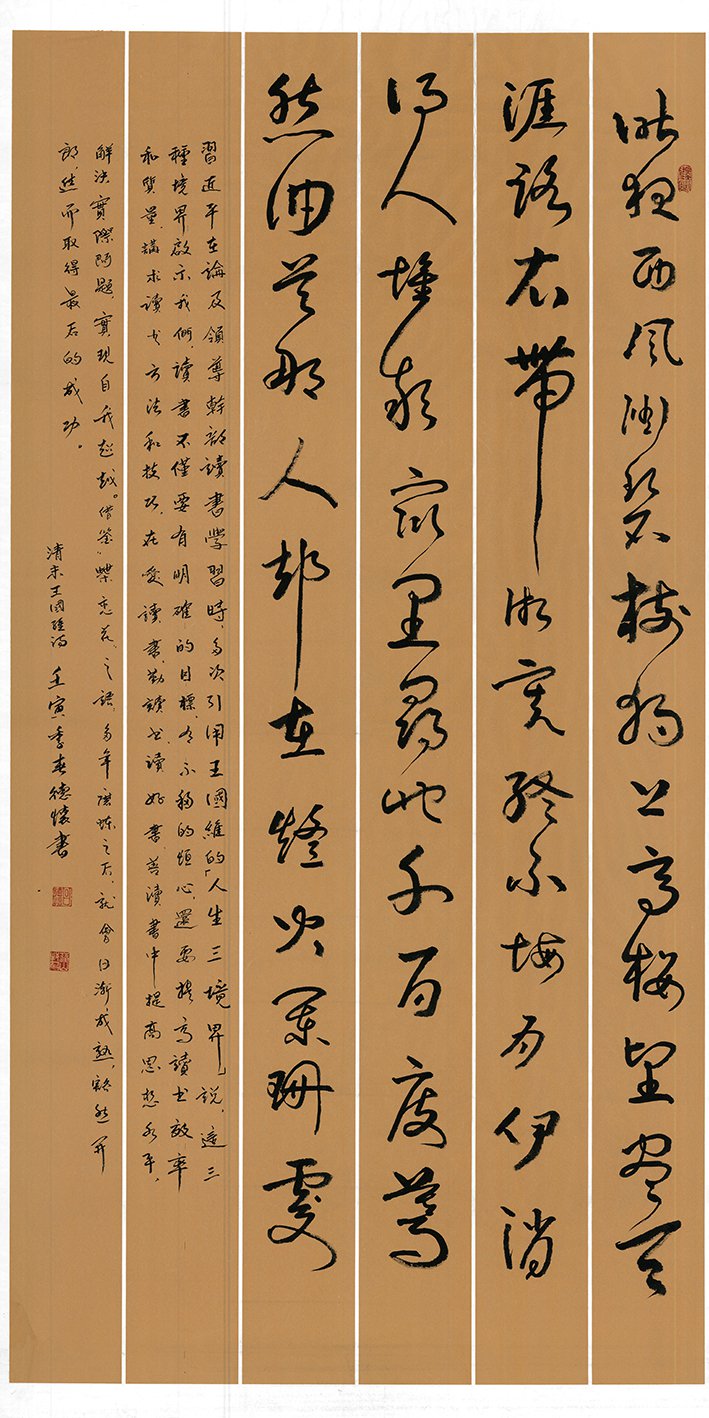 昨夜西风凋碧樹独上高楼望尽天
涯路衣带渐宽终不悔为伊消
得人憔悴众里寻他千百度蓦
然回首那人却在燈火阑珊處
習近平在論及領導幹部讀書學習時，多次引用王國維的「人生三境界」説，這三
種境界啟示我們，讀書不僅要有明確的目標，有不移的恒心，還要提高讀书效率
和質量，講求读书方法和技巧，在愛讀書、勤讀书、讀好書、善讀書中提高思想水平，
解决實際問題，實現自我超越。借鉴「蝶恋花」之語，多年磨炼之后，就會日漸成熟，豁然開
郎，進而取得最后的成功。
清末王國維词 壬寅季春德懷書